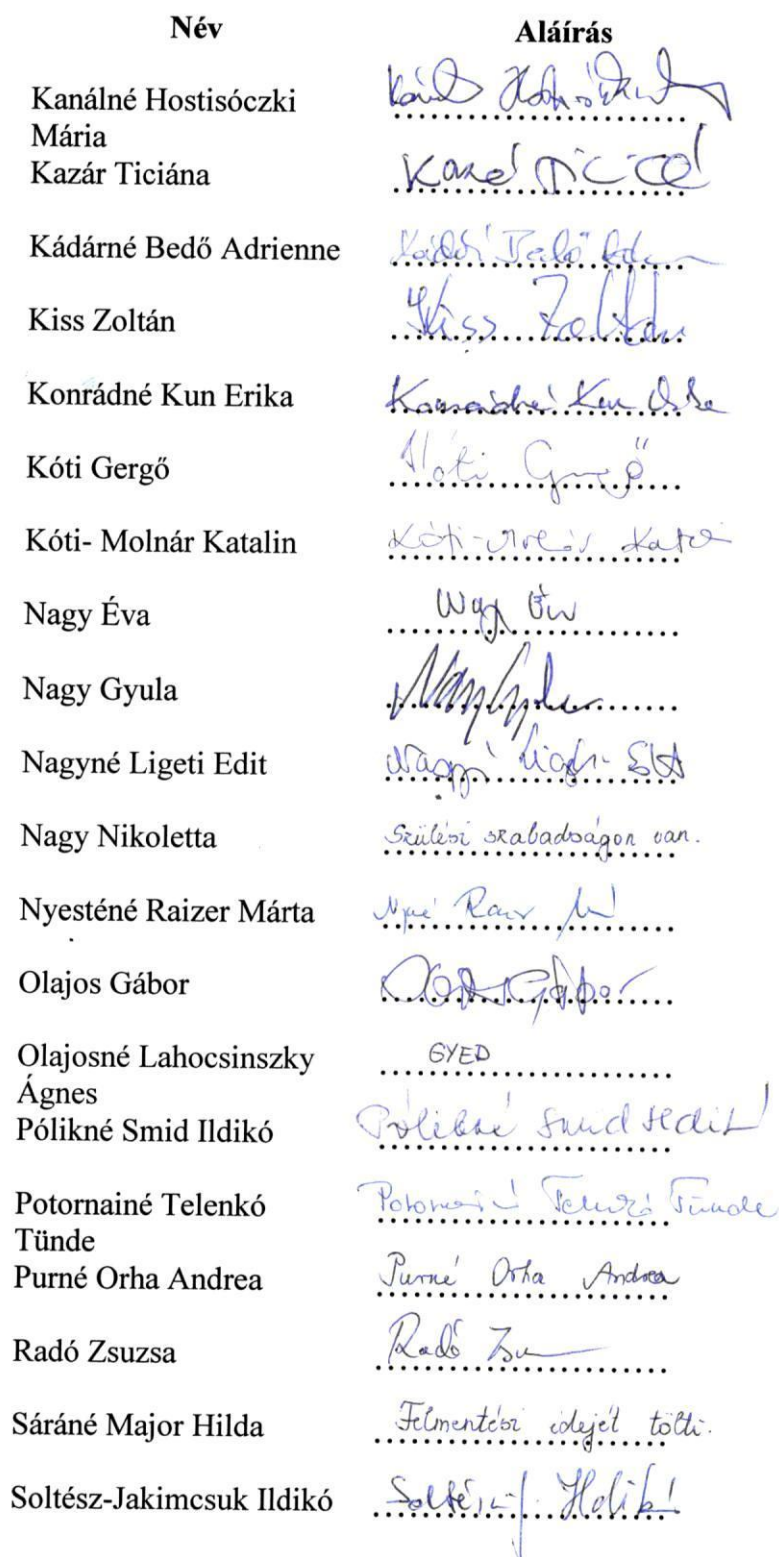 Név Aláírás
Kanálné Hostisóczki
Mária
Kazár Ticiána
Kádárné Bedő Adrienne
Kiss Zoltán Kiss Zoltán
Konrádné Kun Erika
Kóti Gergő Kóti Gergő
Kóti- Molnár Katalin Kóti-Molnár Kata
Nagy Éva Nagy Éva
Nagy Gyula Nagy Gyula
Nagyné Ligeti Edit
Nagy Nikoletta Szülési szabadságon van.
Nyesténé Raizer Márta
Olajos Gábor Olajos Gábor
Olajosné Lahocsinszky GYED
Ágnes
Pólikné Smid Ildikó Pólikné Smid Ildikó
Potornainé Telenkó Potornainé Telenkó Tünde
Tünde
Purné Orha Andrea Purné Orha Andrea
Radó Zsuzsa Radó Zsu
Sáráné Major Hilda Felmentési idejét tölti.
Soltész-Jakimcsuk Ildikó Soltész-J. Ildikó